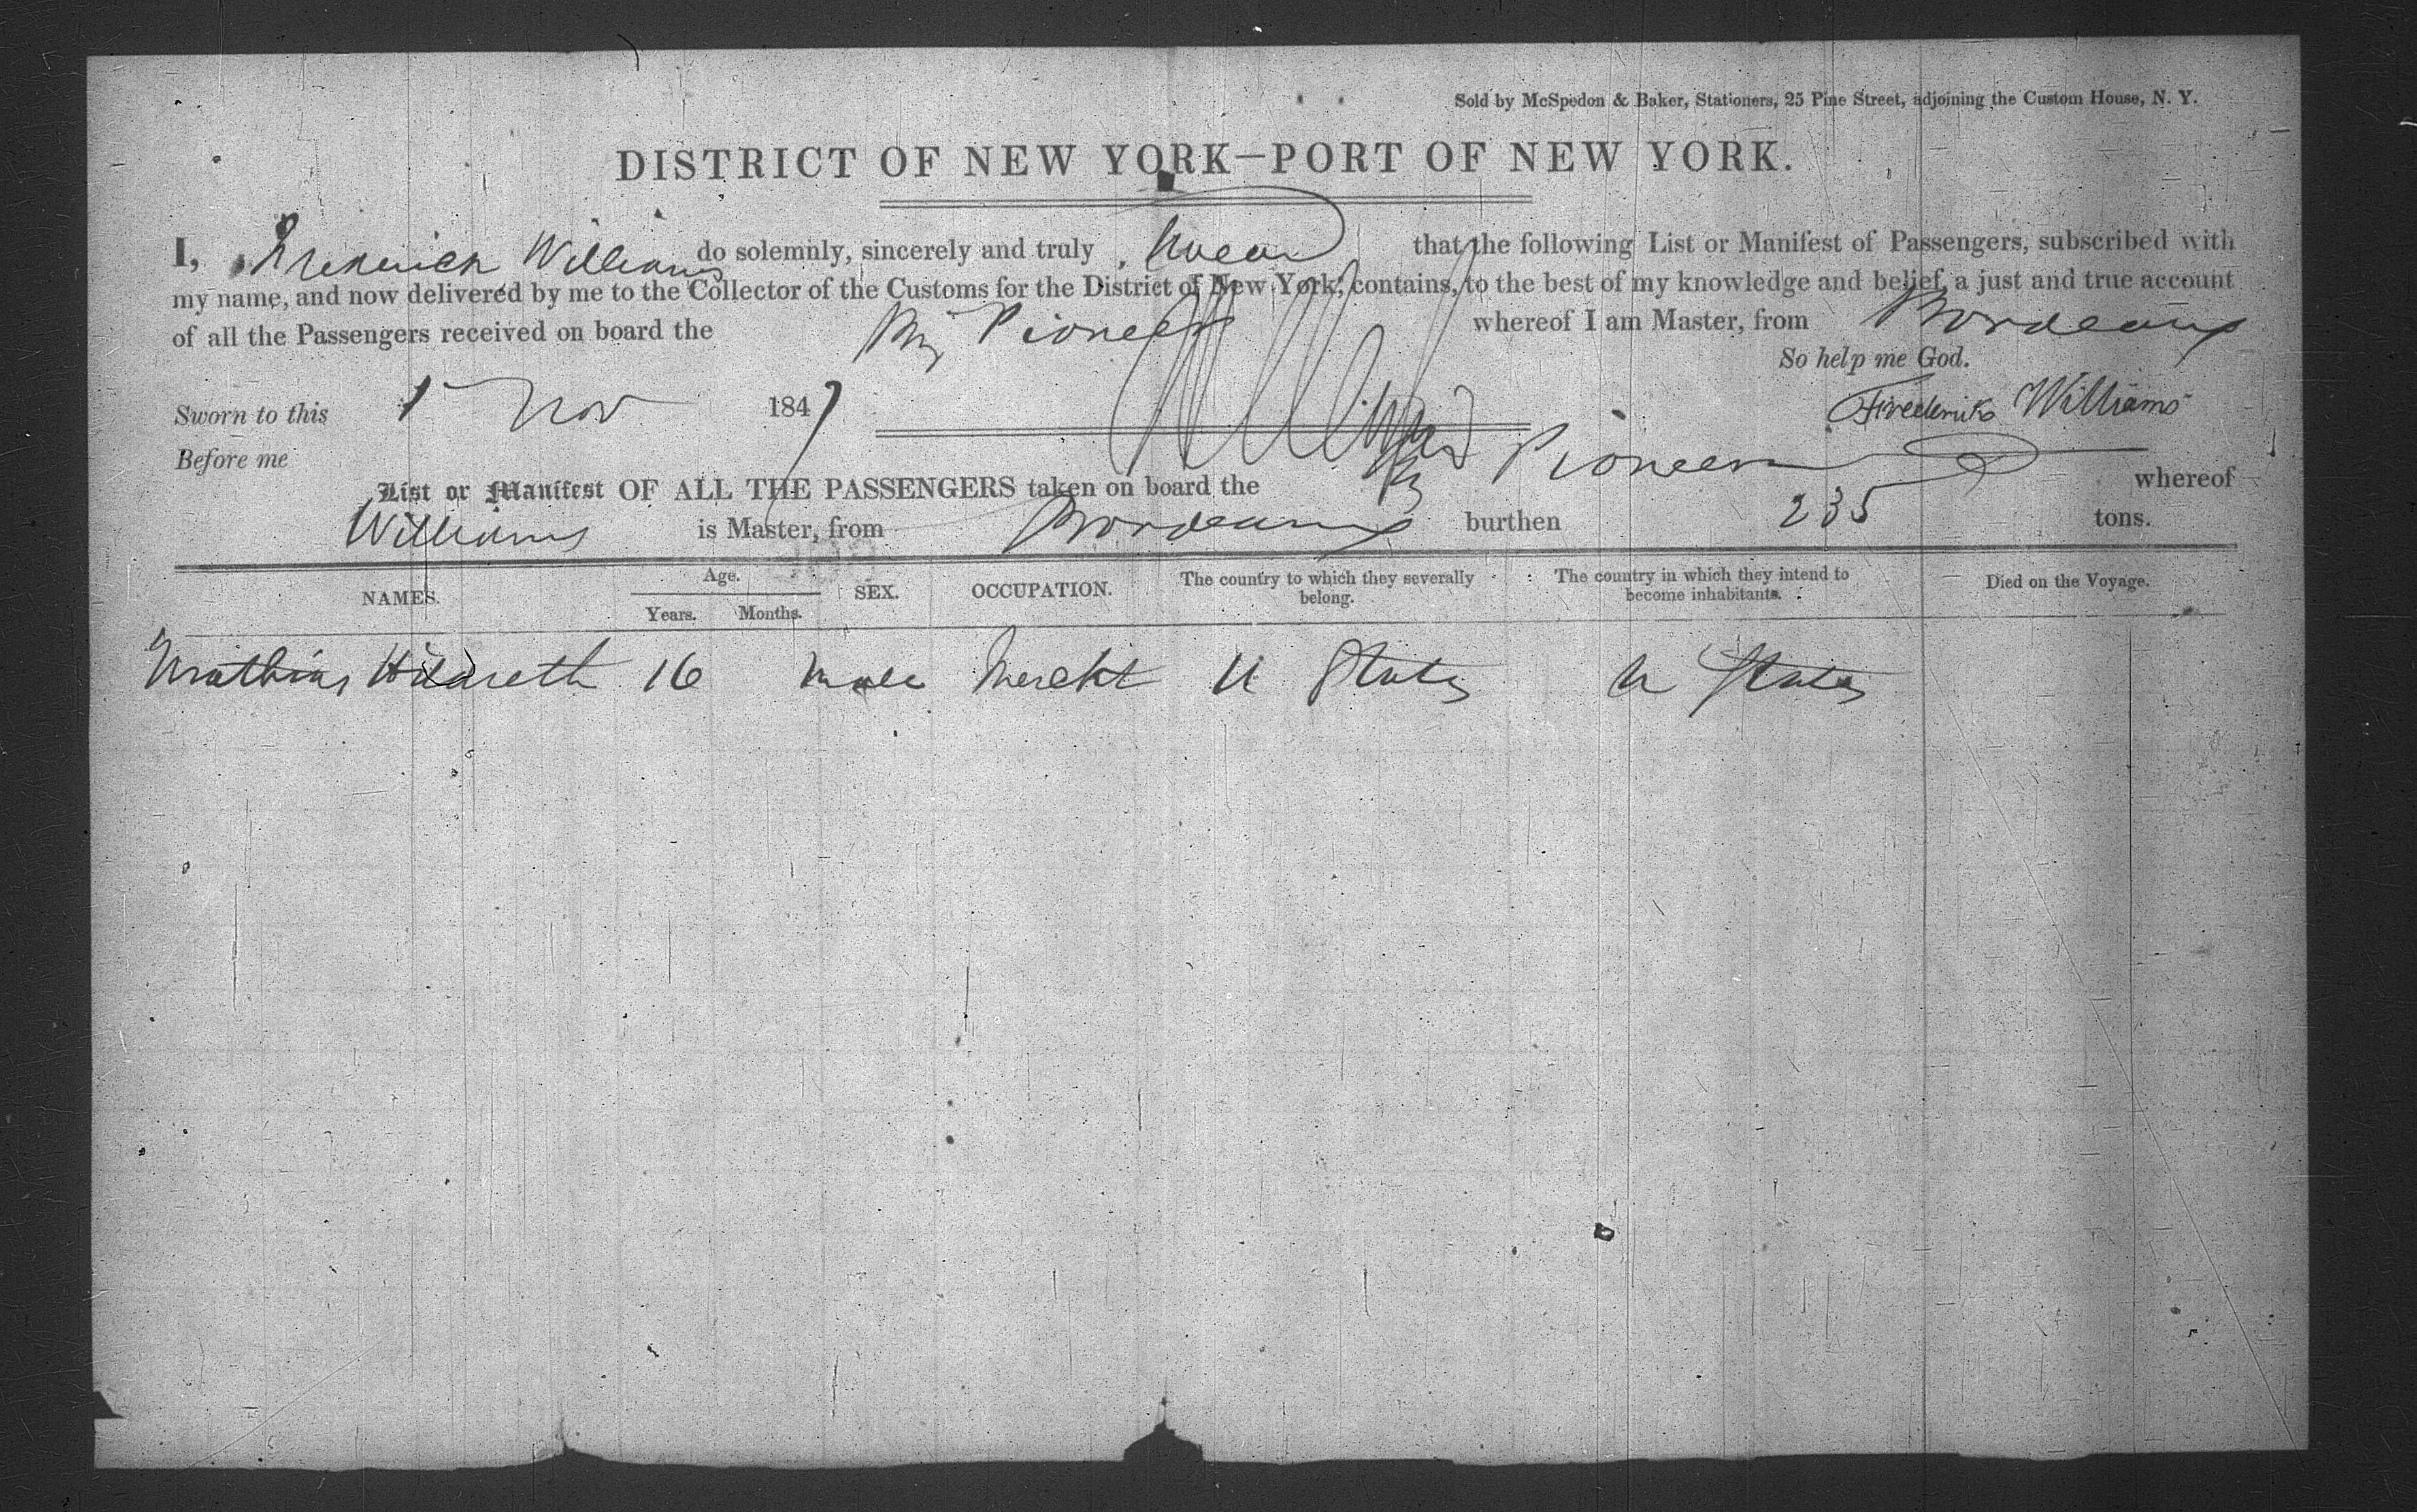 Sold by McSpedon & Baker, Stationers, 25 Pine Street, adjoining the Custom House, N. Y.
DISTRICT OF NEW YORK—PORT OF NEW YORK.
I, Frederick Williams do solemnly, sincerely and truly swear that the following List or Manifest of Passengers, subscribed with
my name, and now delivered by me to the Collector of the Customs for the District of New York, contains, to the best of my knowledge and belief, a just and true account
of all the Passengers received on board the Brig Pioneer whereof I am Master, from Bordeaux
So help me God.
Sworn to this 1 Nov 1847 Frederick Williams
Before me
List or Manifest OF ALL THE PASSENGERS taken on board the Brig Pioneer whereof
Williams is Master, from Bordeaux burthen 235 tons.
NAMES. Age. Years. Months. SEX. OCCUPATION. The country to which they severally belong. The country in which they intend to become inhabitants. Died on the Voyage.
Mathias Hildreth 16 Male Mercht U States U States